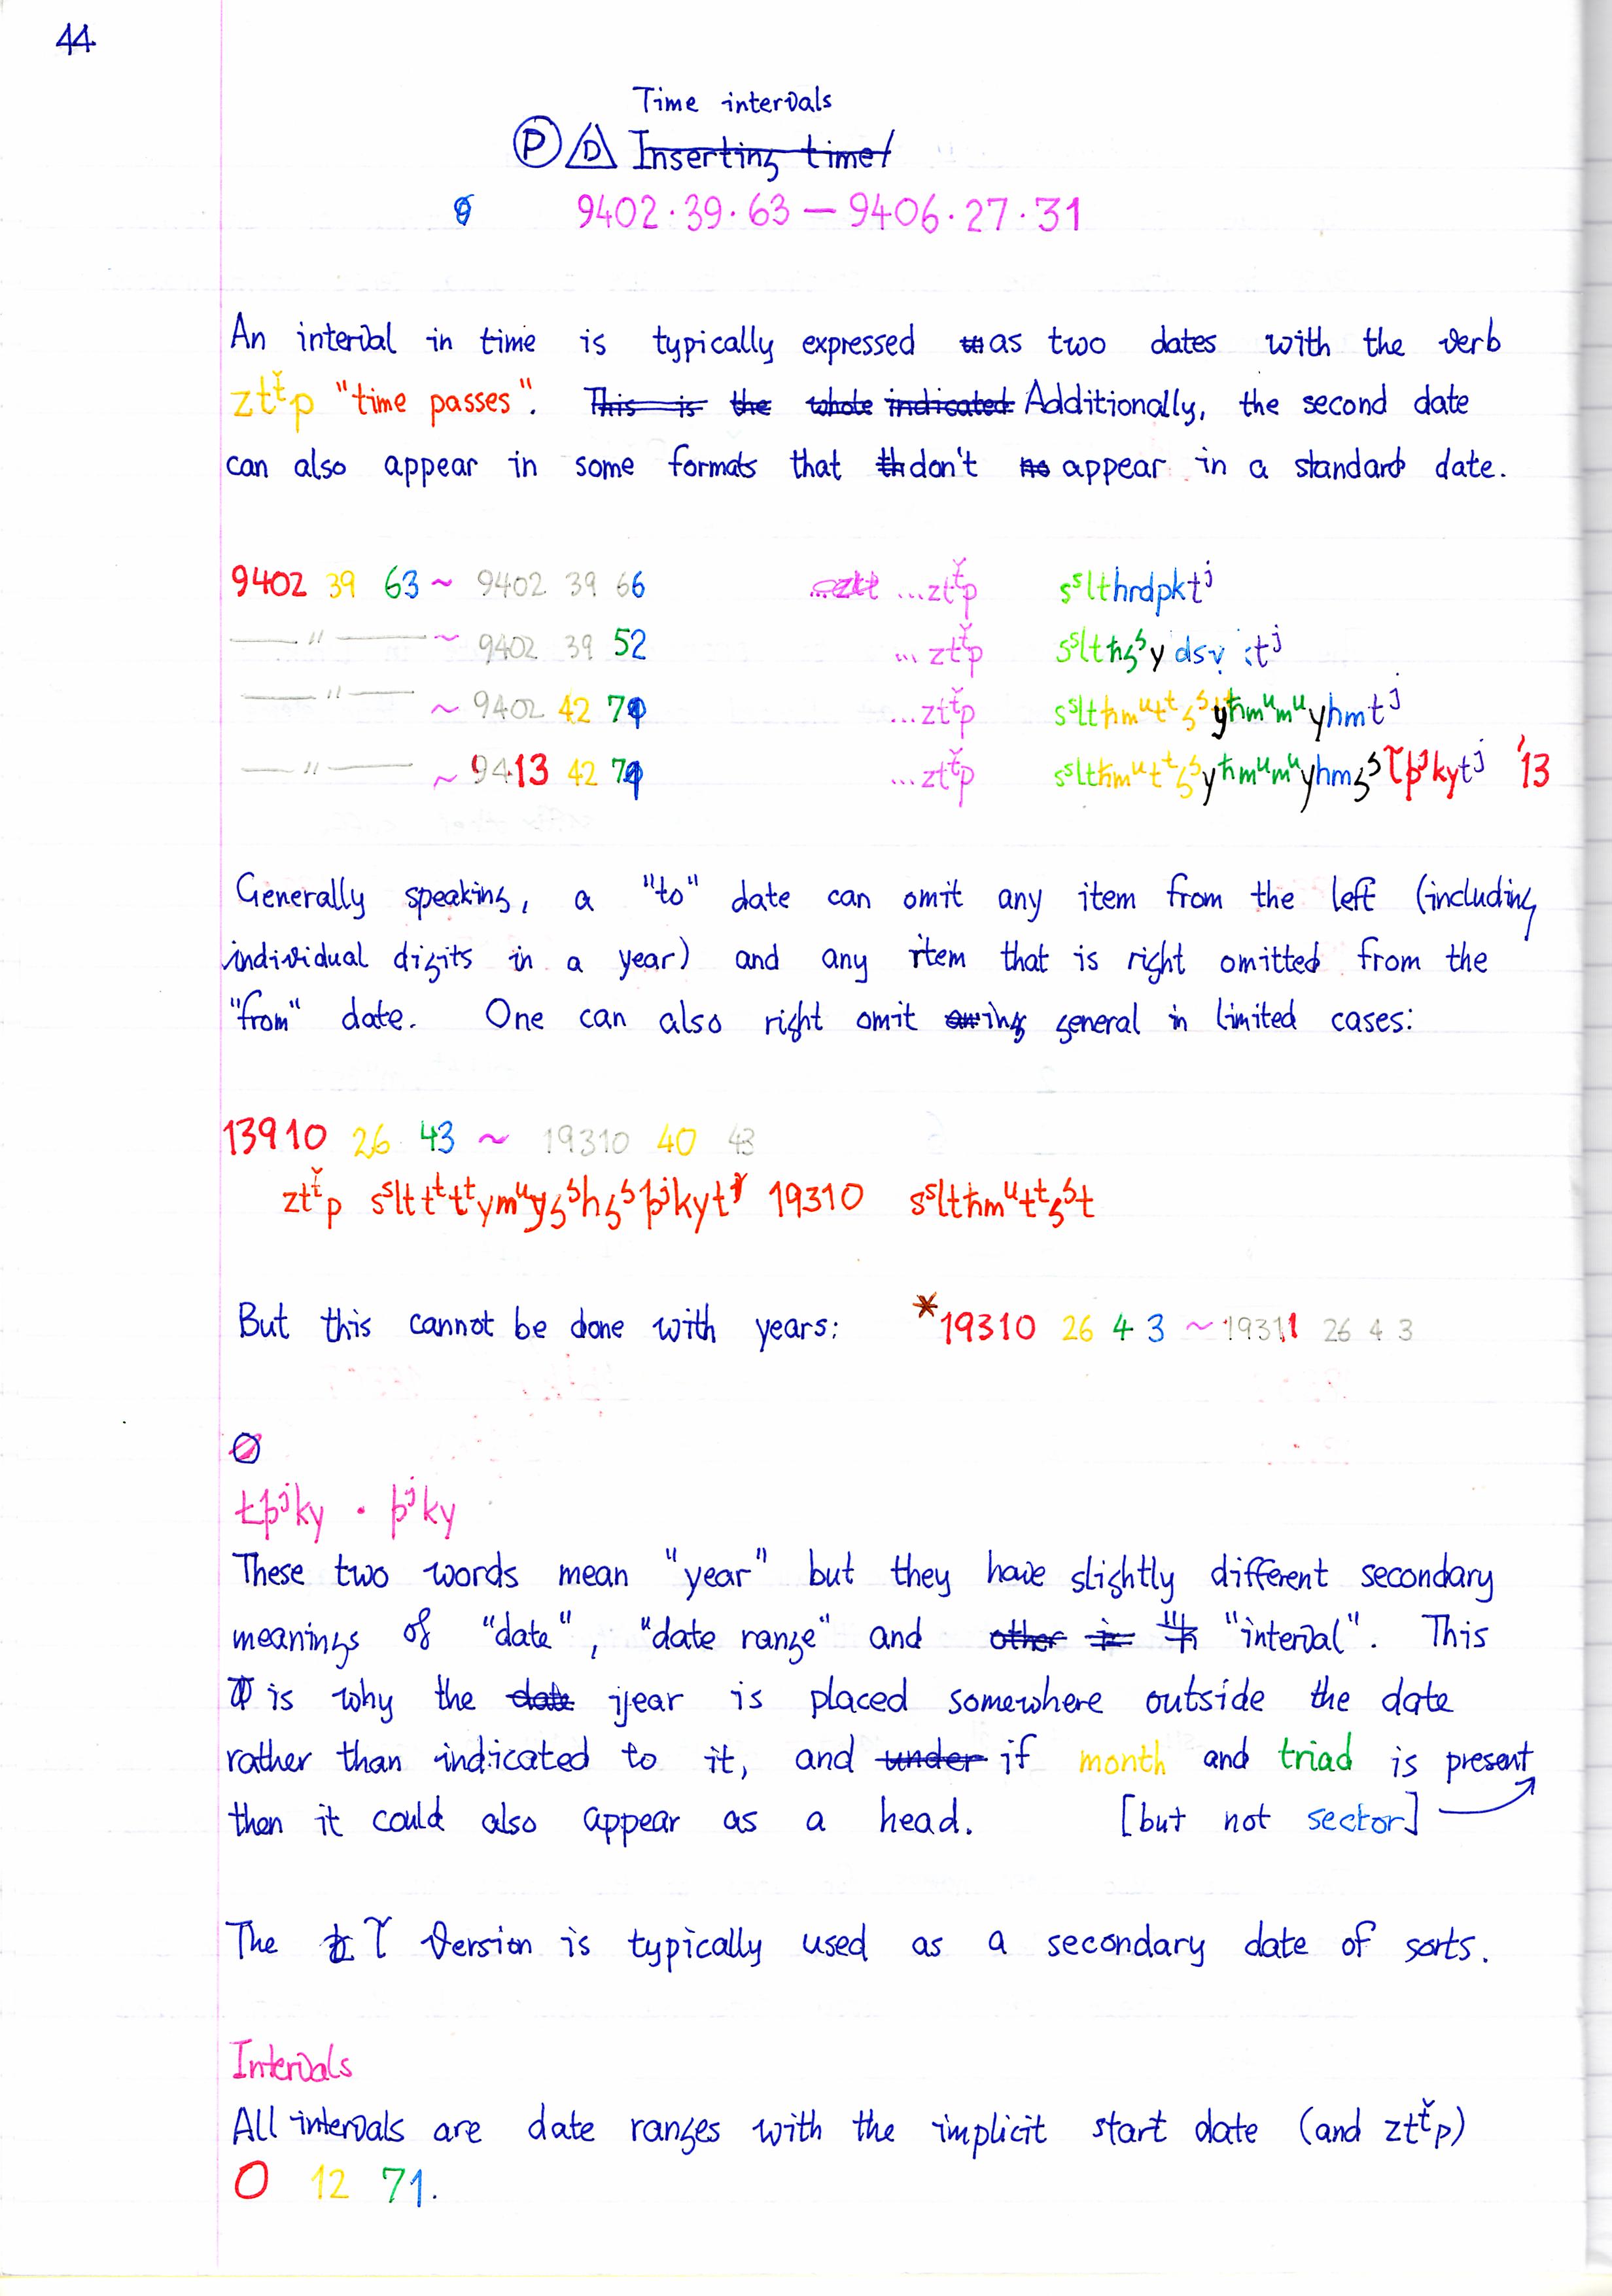 44
Time intervals
P D Inserting time/
9402·39·63 — 9406·27·31
An interval in time is typically expressed as two dates with the verb
ztť̵p "time passes". This is the whole indicated Additionally, the second date
can also appear in some formats that don't appear in a standard date.
9402 39 63 ~ 9402 39 66
—— " —— ~ 9402 39 52
—— " —— ~ 9402 42 71
—— " —— ~ 9413 42 71 '13
Generally speaking, a "to" date can omit any item from the left (including
individual digits in a year) and any item that is right omitted from the
"from" date. One can also right omit general in limited cases:
13910 26 43 ~ 19310 40 43
19310
But this cannot be done with years: *19310 26 4 3 ~ 19311 26 4 3
Ø
ŧþʲky · þʲky
These two words mean "year" but they have slightly different secondary
meanings of "date", "date range" and other "interval". This
is why the date year is placed somewhere outside the date
rather than indicated to it, and under if month and triad is present
then it could also appear as a head. [but not sector]
The version is typically used as a secondary date of sorts.
Intervals
All intervals are date ranges with the implicit start date (and ztť̵p)
0 12 71.